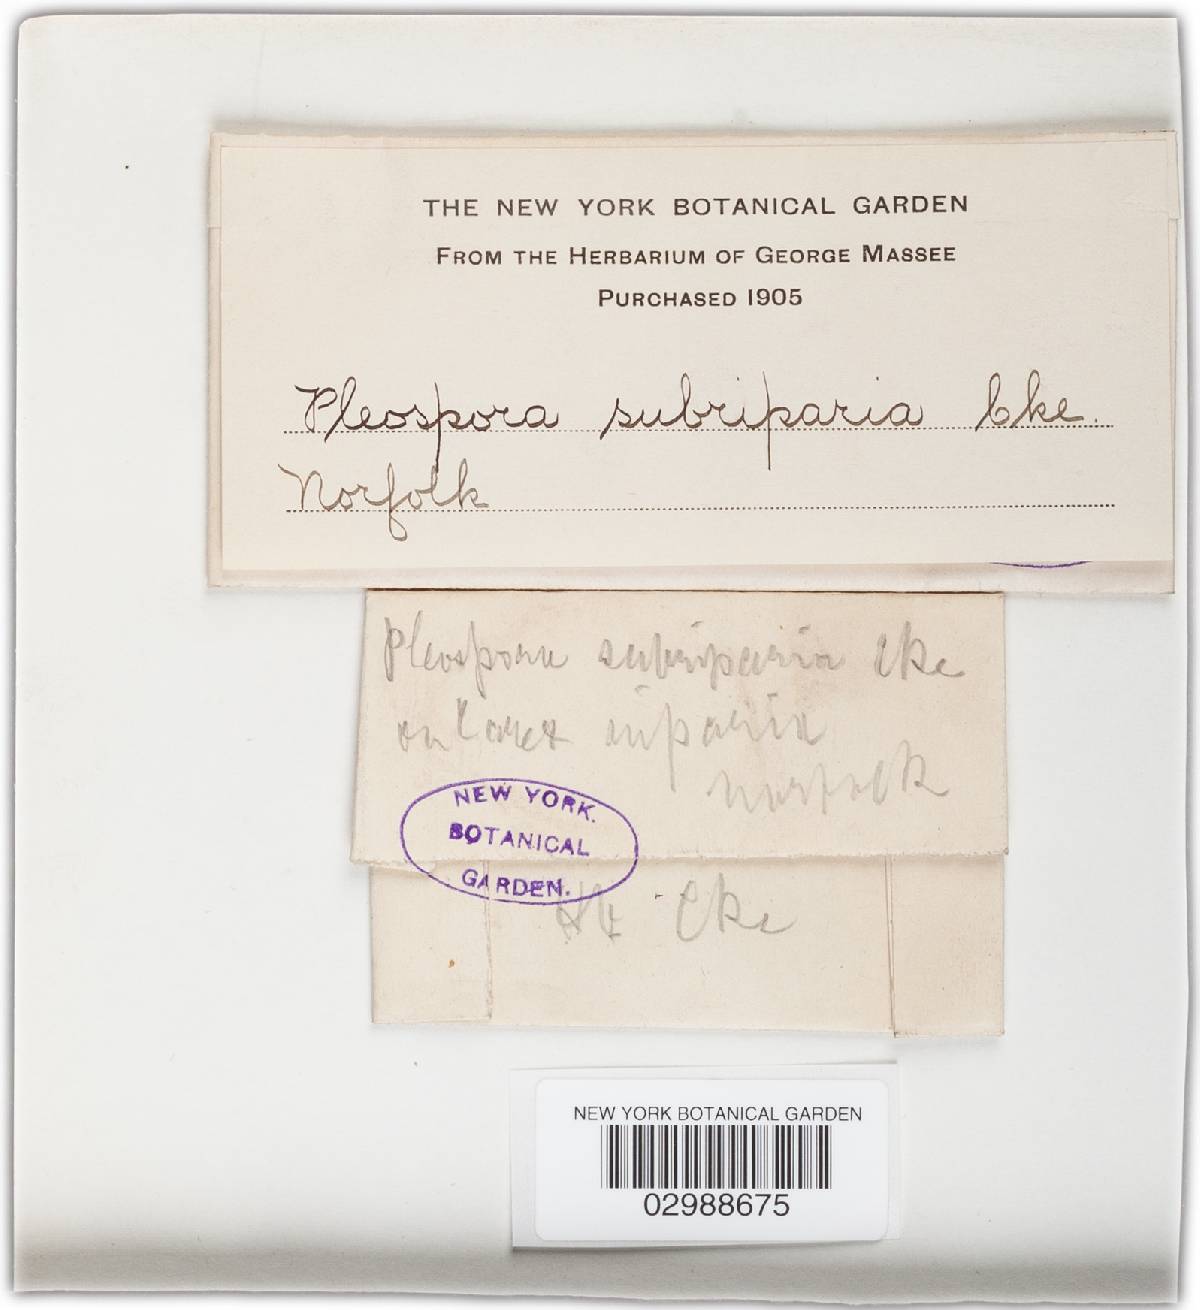 THE NEW YORK BOTANICAL GARDEN
FROM THE HERBARIUM OF GEORGE MASSEE
PURCHASED 1905
Pleospora subriparia Cke.
Norfolk
Pleospora subriparia Cke
on Carex riparia
Norfolk
NEW YORK.
BOTANICAL
GARDEN.
Cke
NEW YORK BOTANICAL GARDEN
02988675